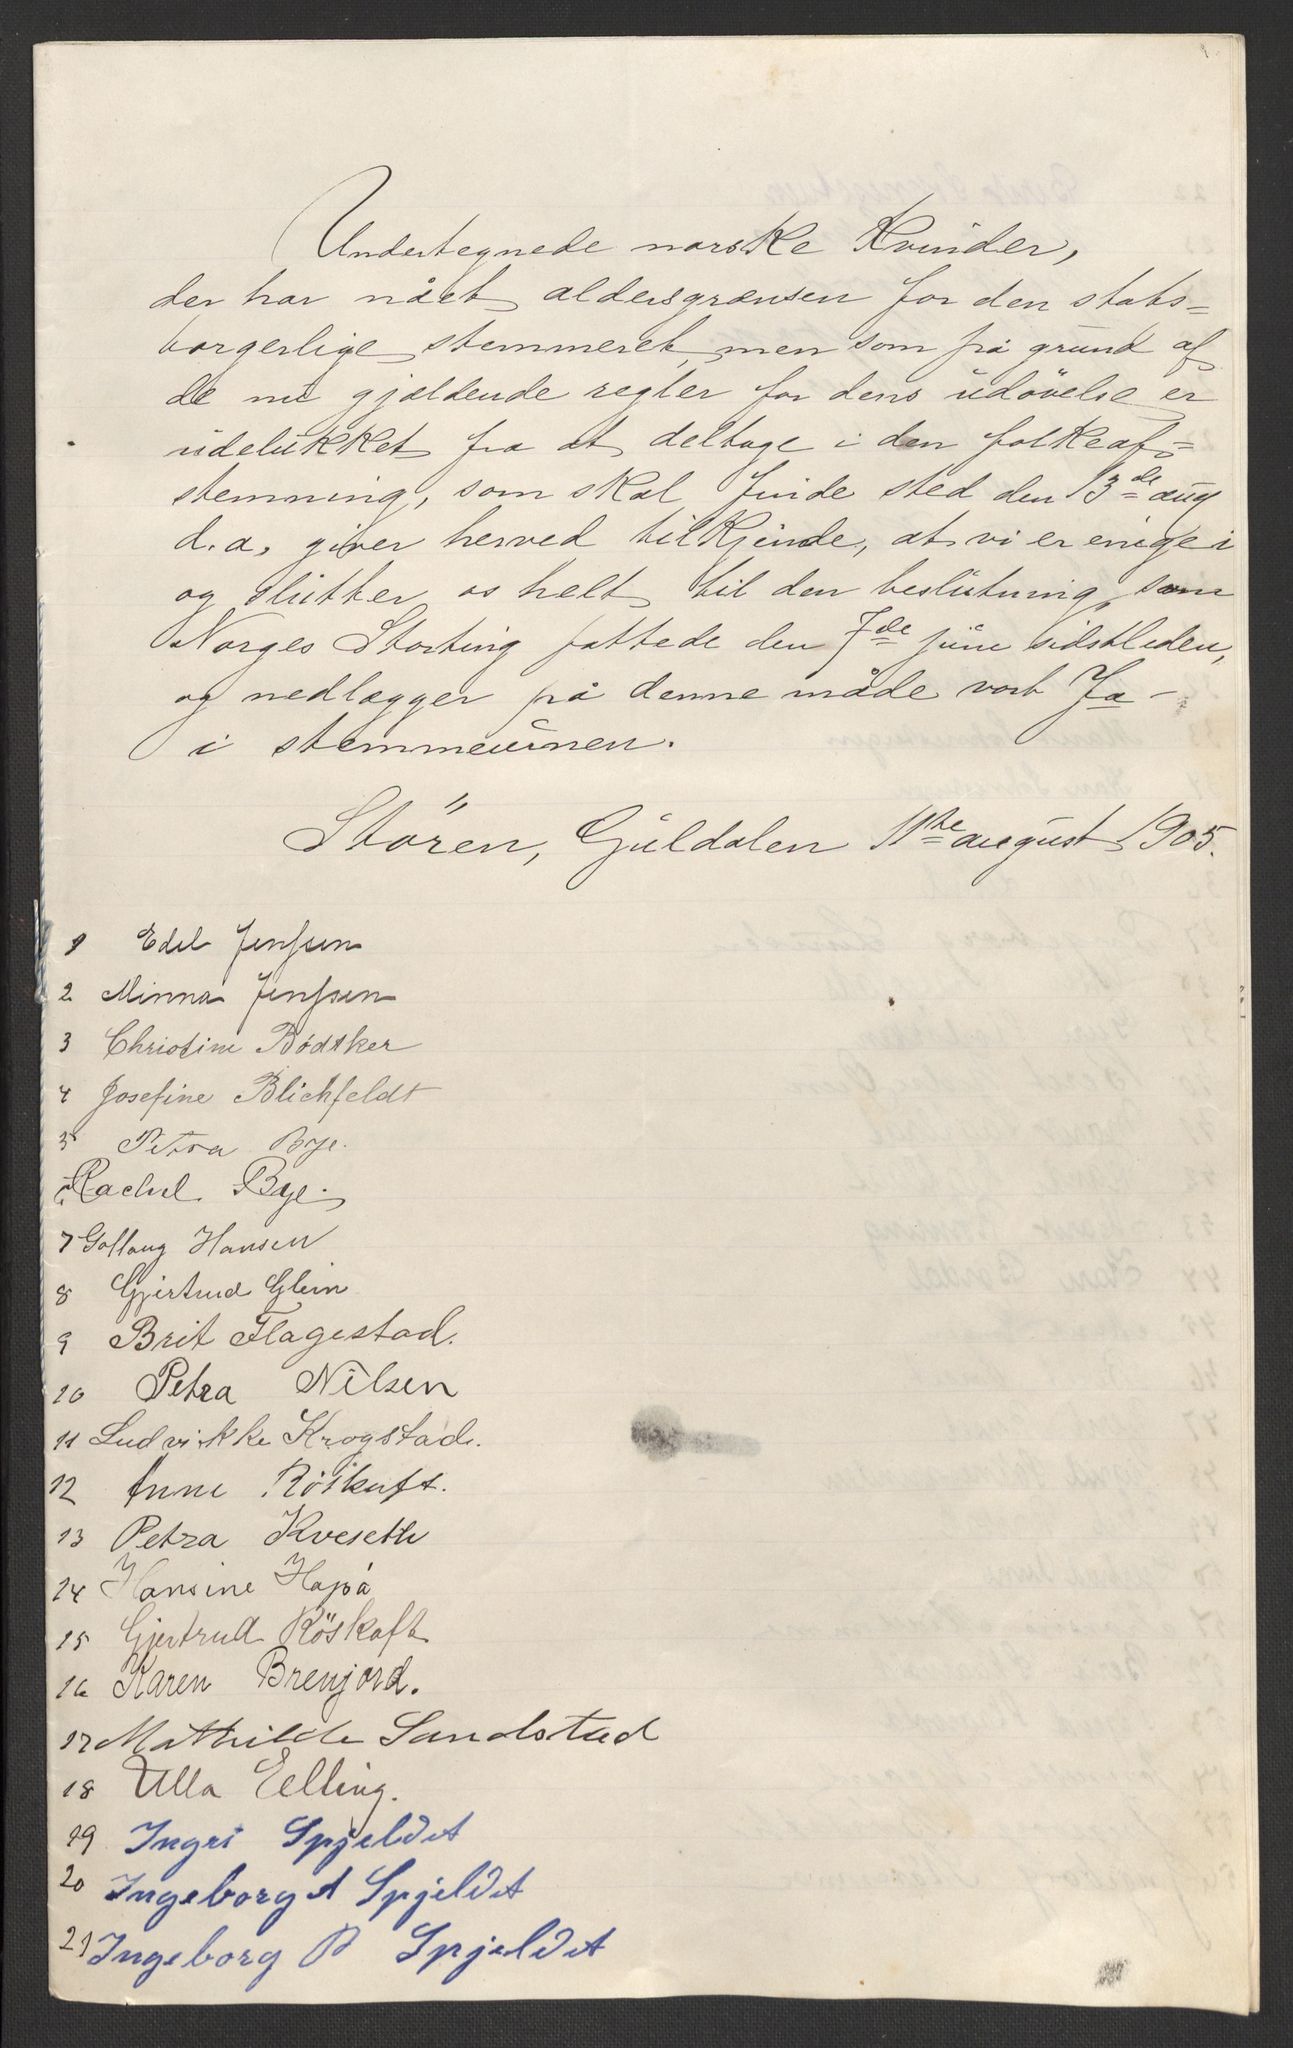 Undertegnede norske Kvinder,
der har nået aldersgrænsen for den stats=
borgerlige stemmeret, men som på grund af
de nu gjældende regler for dens udøvelse er
udelukket fra at deltage i den folkeaf=
stemning, som skal finde sted den 13de aug
d.a. giver herved tilkjende, at vi er enige i
og slutter os helt til den beslutning som
Norges Storting fattede den 7de juni sidstleden,
og nedlægger på denne måde vort Ja -
i stemmeurnen.
Stören, Guldalen 11te august 1905.
1 Edel Jenssen
2 Minna Jenssen
3 Christine Bødtker
4 Josefine Blichfeldt
5 Petra Bye.
Rachel Bye.
7 Gollaug Hansen
8 Gjertrud Glein
9 Brit Flagestad.
10 Petra Nilsen
11 Ludvikke Krogstad.
12 Anne Röskaft.
13 Petra Kveseth
14 Hansine
15 Gjertrud Röskaft
16 Karen Brenjord.
17 Mathilde Sandstad
18 Ulla Elling.
19 Ingri Spjeldet
20 Ingeborg A Spjeldet
21 Ingeborg B Spjeldet